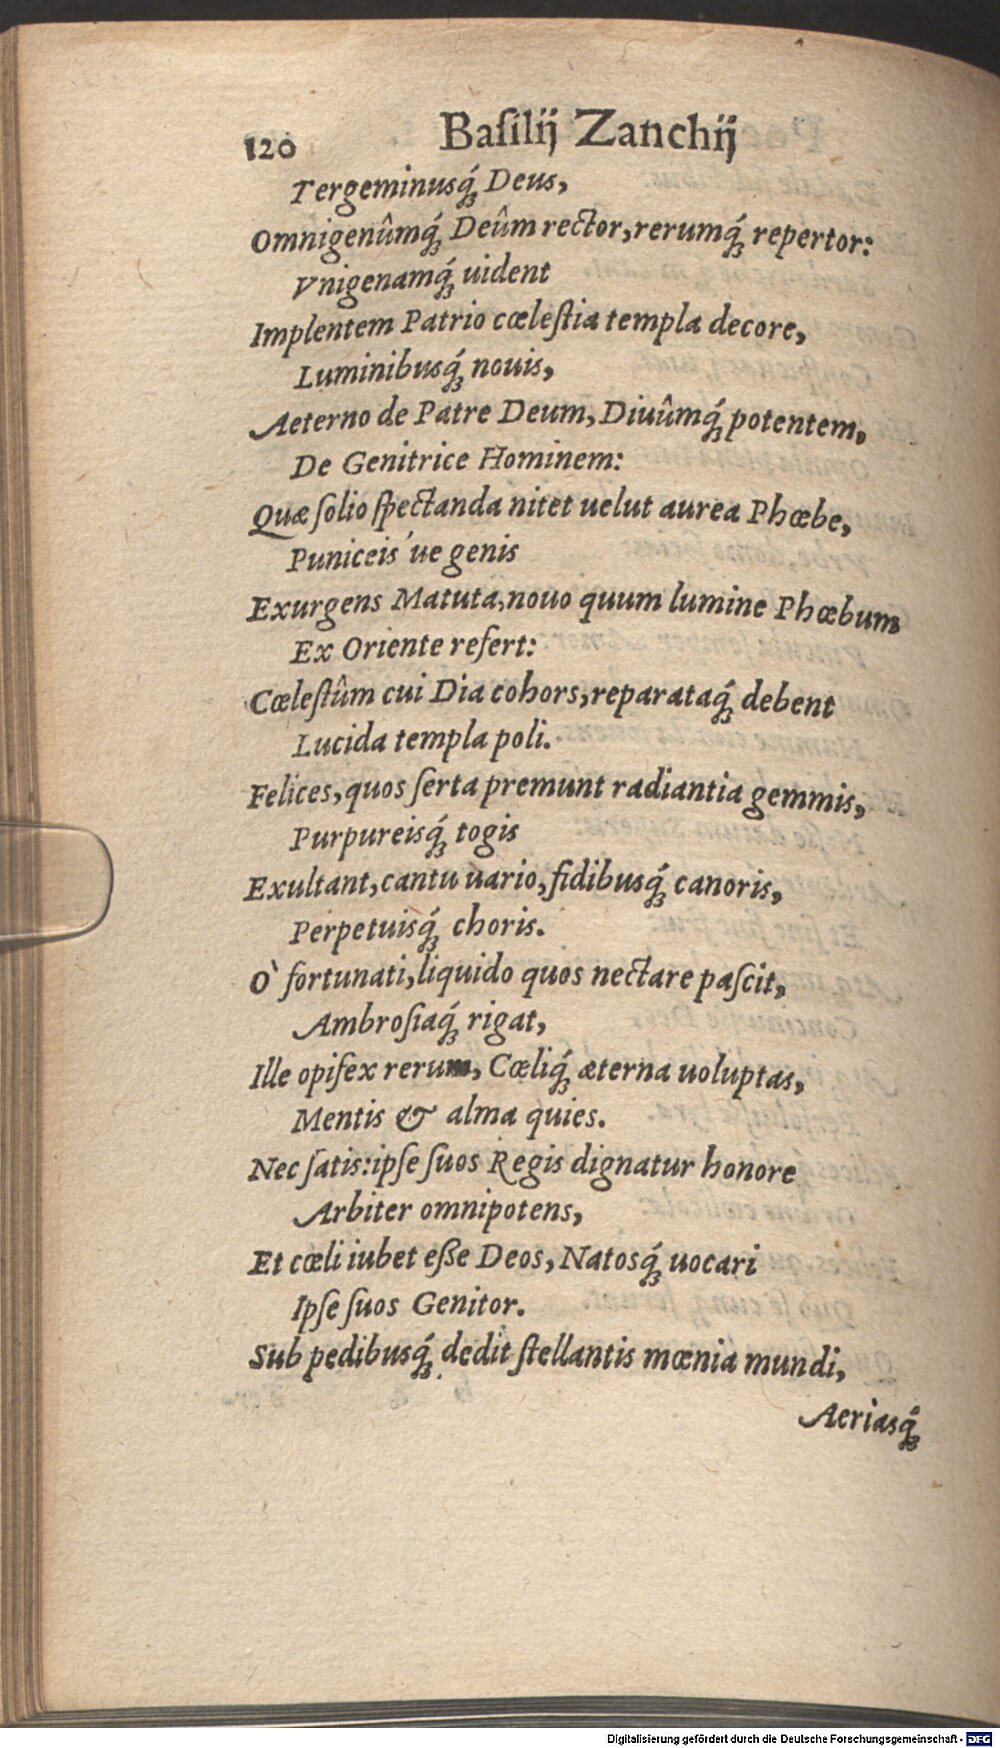 120 Baſilij Zanchij
Tergeminusq́; Deus,
Omnigenûmq́; Deûm rector, rerumq́; repertor:
Vnigenamq́; uident
Implentem Patrio cœleſtia templa decore,
Luminibusq́; nouis,
Aeterno de Patre Deum, Diuûmq́; potentem,
De Genitrice Hominem:
Quæ ſolio ſpectanda nitet uelut aurea Phœbe,
Puniceis'ue genis
Exurgens Matuta, nouo quum lumine Phœbum
Ex Oriente refert:
Cœleſtûm cui Dia cohors, reparataq́; debent
Lucida templa poli.
Felices, quos ſerta premunt radiantia gemmis,
Purpureisq́; togis
Exultant, cantu uario, fidibusq́; canoris,
Perpetuisq́; choris.
O` fortunati, liquido quos nectare paſcit,
Ambroſiaq́; rigat,
Ille opifex rerum, Cœliq́; æterna uoluptas,
Mentis & alma quies.
Nec ſatis: ipſe ſuos Regis dignatur honore
Arbiter omnipotens,
Et cœli iubet eſſe Deos, Natosq́; uocari
Ipſe ſuos Genitor.
Sub pedibusq́; dedit ſtellantis mœnia mundi,
Aeriasq́;
Digitalisierung gefördert durch die Deutsche Forschungsgemeinschaft - DFG